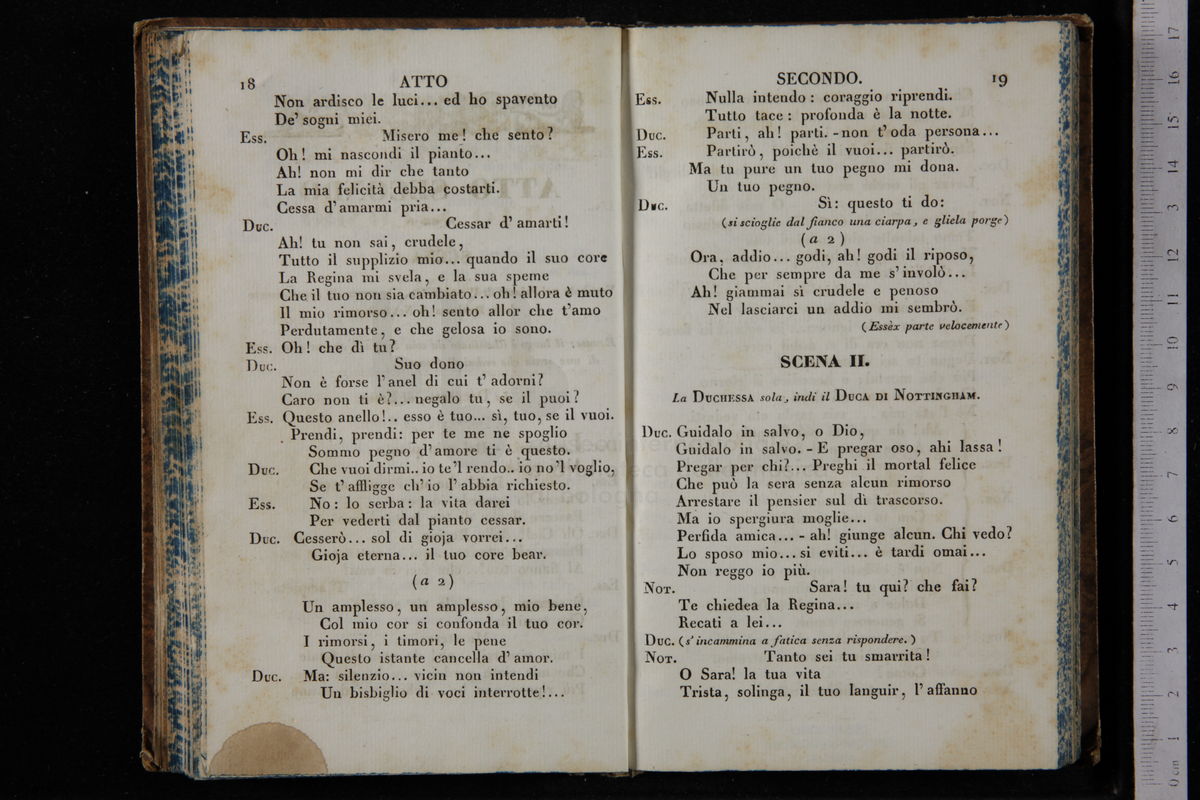 18
ATTO
Non ardisco le luci... ed ho spavento
De' sogni miei.
Ess. Misero me! che sento?
Oh! mi nascondi il pianto...
Ah! non mi dir che tanto
La mia felicità debba costarti.
Cessa d'amarmi pria...
Duc. Cessar d'amarti!
Ah! tu non sai, crudele,
Tutto il supplizio mio... quando il suo core
La Regina mi svela, e la sua speme
Che il tuo non sia cambiato... oh! allora è muto
Il mio rimorso... oh! sento allor che t'amo
Perdutamente, e che gelosa io sono.
Ess. Oh! che dì tu?
Duc. Suo dono
Non è forse l'anel di cui t'adorni?
Caro non ti è?... negalo tu, se il puoi?
Ess. Questo anello!.. esso è tuo... sì, tuo, se il vuoi.
Prendi, prendi: per te me ne spoglio
Sommo pegno d'amore ti è questo.
Duc. Che vuoi dirmi.. io te'l rendo.. io no'l voglio,
Se t'affligge ch'io l'abbia richiesto.
Ess. No: lo serba: la vita darei
Per vederti dal pianto cessar.
Duc. Cesserò... sol di gioja vorrei...
Gioja eterna... il tuo core bear.
(a 2)
Un amplesso, un amplesso, mio bene,
Col mio cor si confonda il tuo cor.
I rimorsi, i timori, le pene
Questo istante cancella d'amor.
Duc. Ma: silenzio... vicin non intendi
Un bisbiglio di voci interrotte!...
SECONDO.
19
Ess. Nulla intendo: coraggio riprendi.
Tutto tace: profonda è la notte.
Duc. Parti, ah! parti. - non t'oda persona...
Ess. Partirò, poichè il vuoi... partirò.
Ma tu pure un tuo pegno mi dona.
Un tuo pegno.
Duc. Sì: questo ti do:
(si scioglie dal fianco una ciarpa, e gliela porge)
(a 2)
Ora, addio... godi, ah! godi il riposo,
Che per sempre da me s'involò...
Ah! giammai sì crudele e penoso
Nel lasciarci un addio mi sembrò.
(Essèx parte velocemente)
SCENA II.
La Duchessa sola, indi il Duca di Nottingham.
Duc. Guidalo in salvo, o Dio,
Guidalo in salvo. - E pregar oso, ahi lassa!
Pregar per chi?... Preghi il mortal felice
Che può la sera senza alcun rimorso
Arrestare il pensier sul dì trascorso.
Ma io spergiura moglie...
Perfida amica... - ah! giunge alcun. Chi vedo?
Lo sposo mio... si eviti... è tardi omai...
Non reggo io più.
Not. Sara! tu qui? che fai?
Te chiedea la Regina...
Recati a lei...
Duc. (s'incammina a fatica senza rispondere.)
Not. Tanto sei tu smarrita!
O Sara! la tua vita
Trista, solinga, il tuo languir, l'affanno
0 cm 1 2 3 4 5 6 7 8 9 10 11 12 13 14 15 16 17